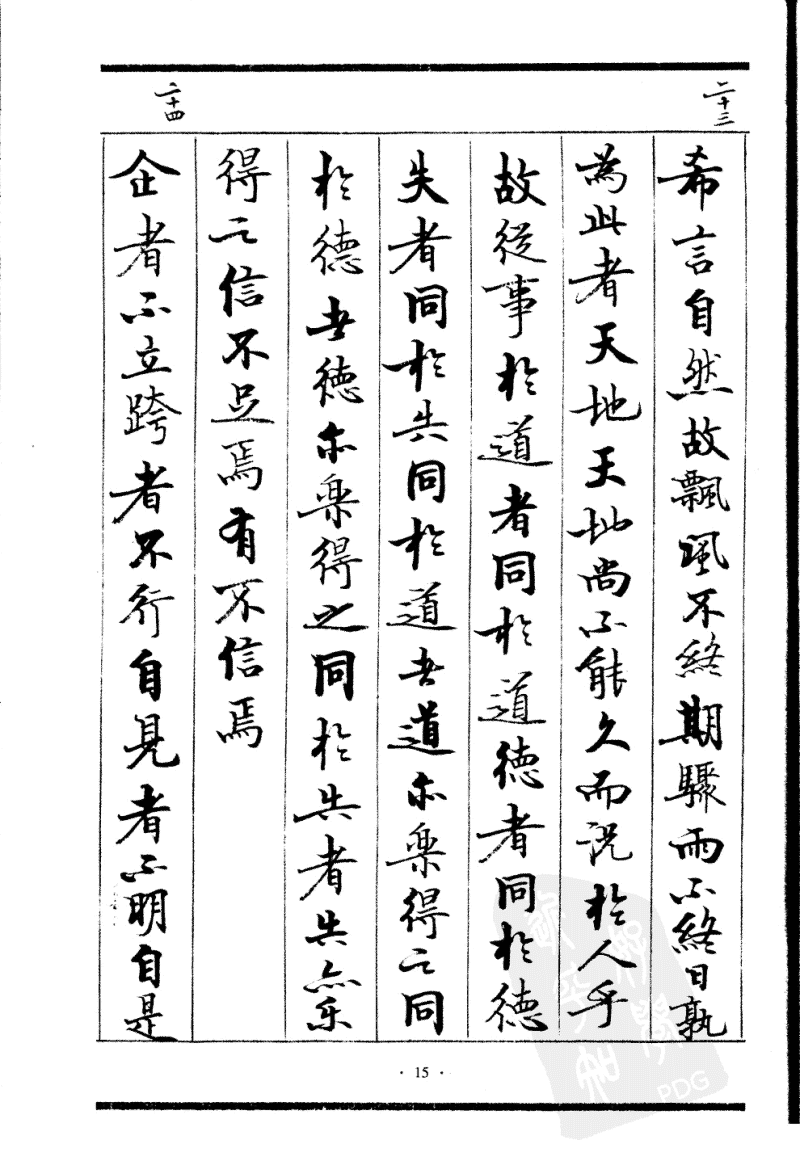 二十三
希言自然故飄風不終期驟雨不終日孰
為此者天地天地尚不能久而況於人乎
故從事於道者同於道德者同於德
失者同於失同於道者道亦樂得之同
於德者德亦樂得之同於失者失亦樂
得之信不足焉有不信焉
二十四
企者不立跨者不行自見者不明自是
· 15 ·
PDG